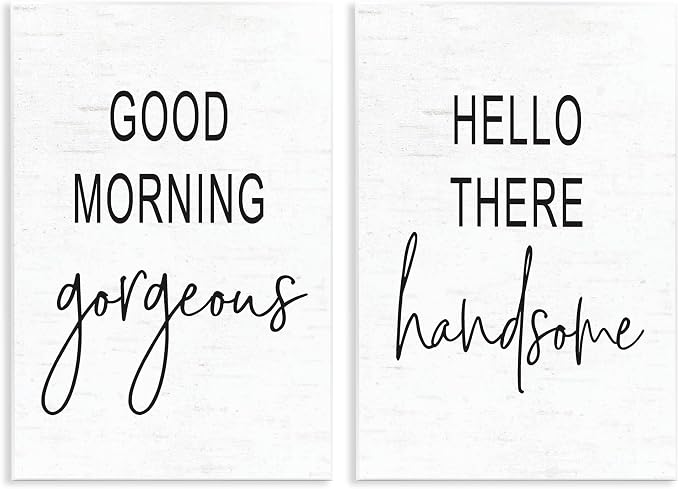 GOOD
MORNING
gorgeous
HELLO
THERE
handsome